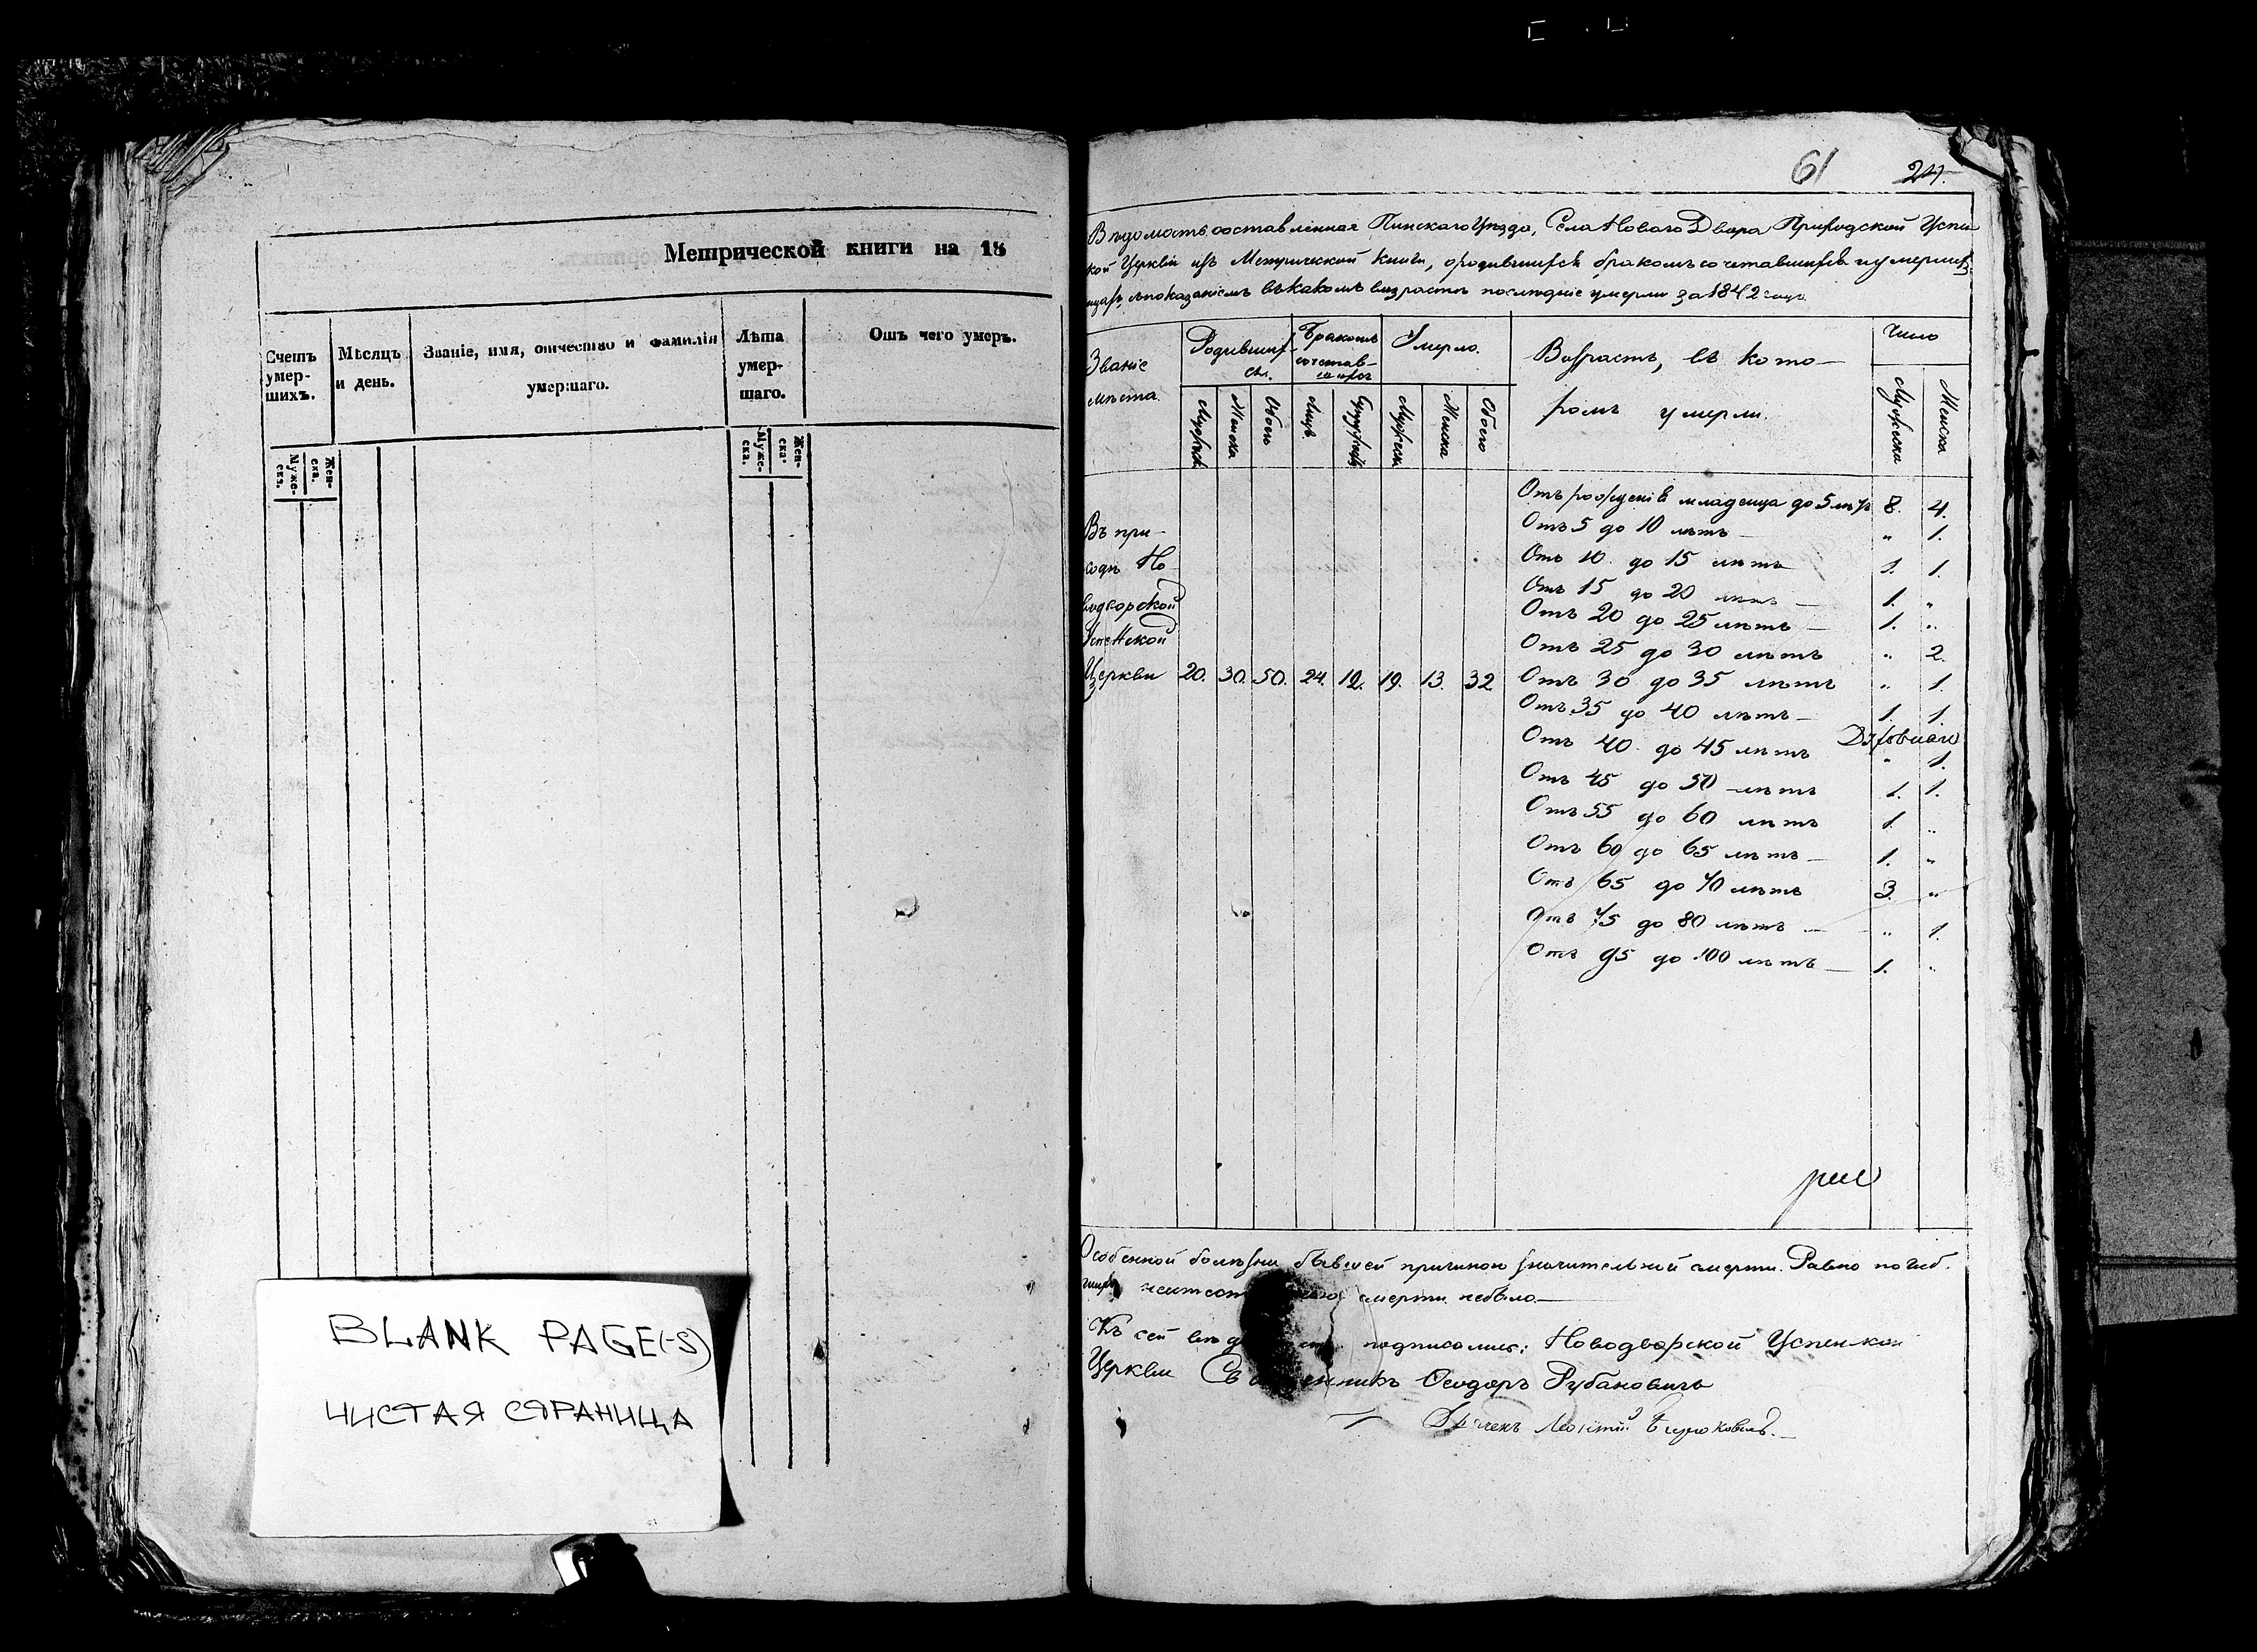 Метрической книги на 18
Счетъ умерших.
Мѣсяцъ и день.
Званіе, имя, отчество и фамилія умершаго.
Лѣта умершаго.
Отъ чего умеръ.
Мужеска.
Женска.
Мужеска.
Женска.
BLANK PAGE(-S)
ЧИСТАЯ СТРАНИЦА
61
Вѣдомость составленная Пинскаго Уѣзда, Села Новаго Двора Приходской Успен
кой Церкви изъ Метрической книги, о родившихся бракомъ сочетавшихся и умерших
съ показаніемъ въ какомъ возрастѣ последніе умерли за 1842 годъ.
Званіе мѣста.
Родившихся.
Бракомъ сочетавшихся
Умерло.
Возрастъ, въ кото-
ромъ умерли.
Число
Мужеска
Женска
Обоего
Лицъ.
Супружествъ
Мужеска
Женска
Обоего
Мужеска
Женска
Отъ рожденія младенца до 5 лѣтъ 8. 4.
Въ при-
Отъ 5 до 10 лѣтъ — „ 1.
ходѣ Но-
Отъ 10 до 15 лѣтъ 1. 1.
водворской
Отъ 15 до 20 лѣтъ — 1. „
Отъ 20 до 25 лѣтъ — 1. „
Успенской
Отъ 25 до 30 лѣтъ „ 2.
Церкви 20. 30. 50. 24. 12. 19. 13. 32
Отъ 30 до 35 лѣтъ „ 1.
Отъ 35 до 40 лѣтъ — 1. 1.
Отъ 40 до 45 лѣтъ „ 1.
Отъ 45 до 50 лѣтъ 1. 1.
Отъ 55 до 60 лѣтъ 1. „
Отъ 60 до 65 лѣтъ — 1. „
Отъ 65 до 70 лѣтъ 3. „
Отъ 75 до 80 лѣтъ — „ 1.
Отъ 95 до 100 лѣтъ — 1. „
Особенной болѣзни бывшей причиною значительной смерти. Равно погиб-
смерти небыло.—
Къ сей подписались: Новодворской Успенкой
Церкви Священникъ Ѳеодоръ Рубановичъ
Дьячекъ Леонтій